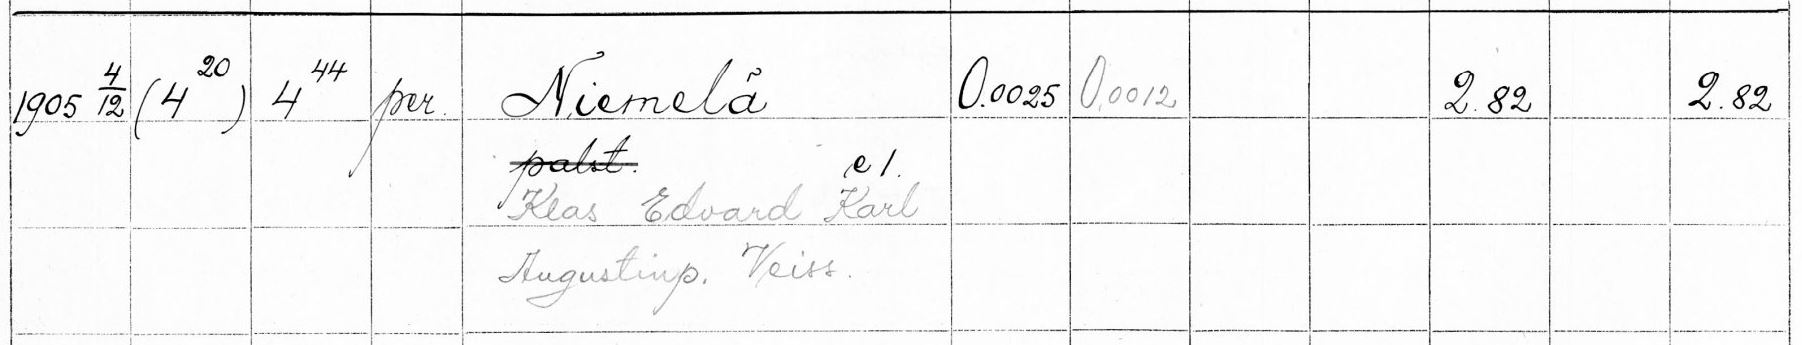 1905 4/12 (4 20) 4 44 per. Niemelä 0.0025 0.0012 2.82 2.82
palst. e 1.
Klas Edvard Karl
Augustinp. Veiss.